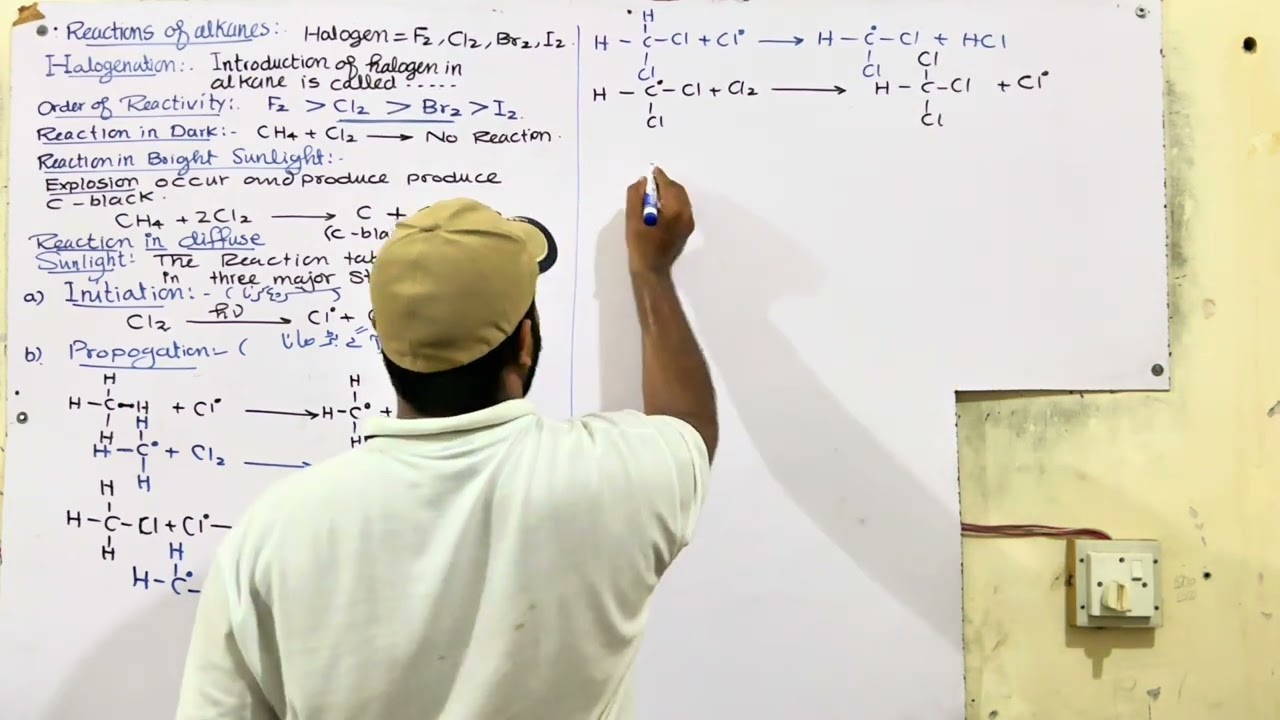 Reactions of alkanes:. Halogen = F₂, Cl₂, Br₂, I₂.
Halogenation:. Introduction of halogen in
alkane is called .....
Order of Reactivity:. F₂ > Cl₂ > Br₂ > I₂.
Reaction in Dark:- CH₄ + Cl₂ ⟶ No Reaction.
Reaction in Bright Sunlight:-
Explosion occur and produce produce
C-black.
CH₄ + 2Cl₂ ⟶ C +
(C-bla
Reaction in diffuse
Sunlight: The Reaction
in three major
a) Initiation:-
Cl₂ hν ⟶ Cl• +
b). Propogation:- (
H
H
H-C-H + Cl• ⟶ H-C• +
H
H
H
H-C• + Cl₂ ⟶
H
H
H-C-Cl + Cl• —
H
H
H-C•-
H
H-C-Cl + Cl• ⟶ H-C•-Cl + HCl
Cl
Cl
Cl
H-C•-Cl + Cl₂ ⟶ H-C-Cl + Cl•
Cl
Cl